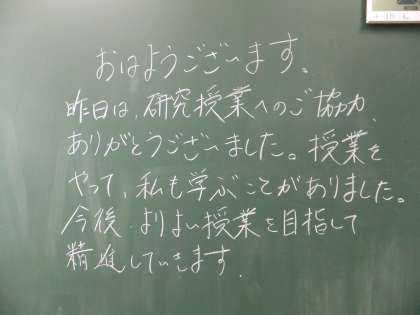 おはようございます。
昨日は、研究授業へのご協力、
ありがとうございました。授業を
やって、私も学ぶことがありました。
今後、よりよい授業を目指して
精進していきます。